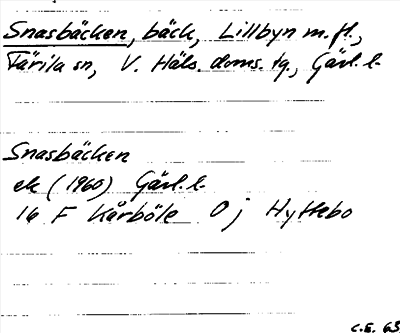 Snasbäcken, bäck, Lillbyn m.fl.,
Färila sn, V. Häls. doms. tg., Gävl. l.
Snasbäcken
ek (1960) Gävl. l.
16 F Kårböle 0 j Hyttebo
C.E. 63